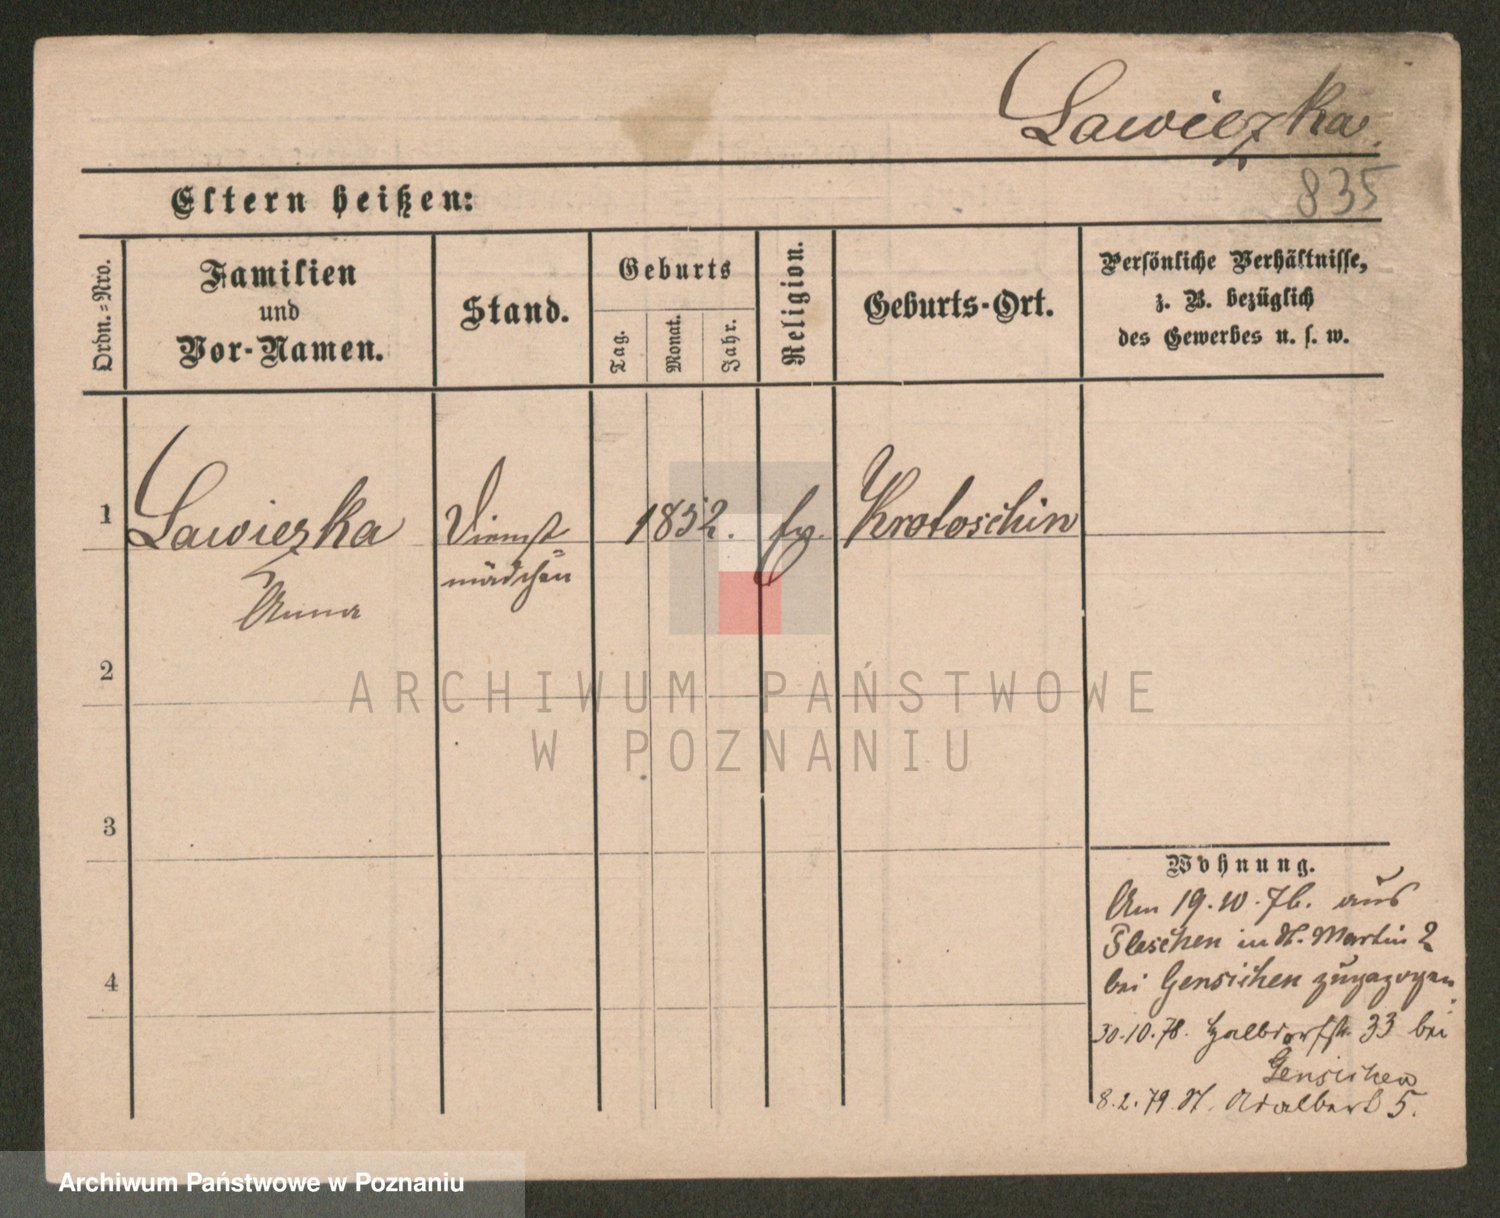 Lawiezka.
835
Eltern heißen:
Ordn.-Nro.
Familien
und
Vor-Namen.
Stand.
Geburts
Tag.
Monat.
Jahr.
Religion.
Geburts-Ort.
Persönliche Verhältnisse,
z. B. bezüglich
des Gewerbes u. s. w.
1
Lawiezka
Anna
Dienst
mädchen
1852.
Krotoschin
2
3
4
Wohnung.
Am 19.10.76. aus
Pleschen in St. Martin 2
bei Gensichen zugezogen.
30.10.78. Halbdorfstr. 33 bei
Gensichen
8.2.79 St. Adalbert 5.
ARCHIWUM PAŃSTWOWE
W POZNANIU
Archiwum Państwowe w Poznaniu